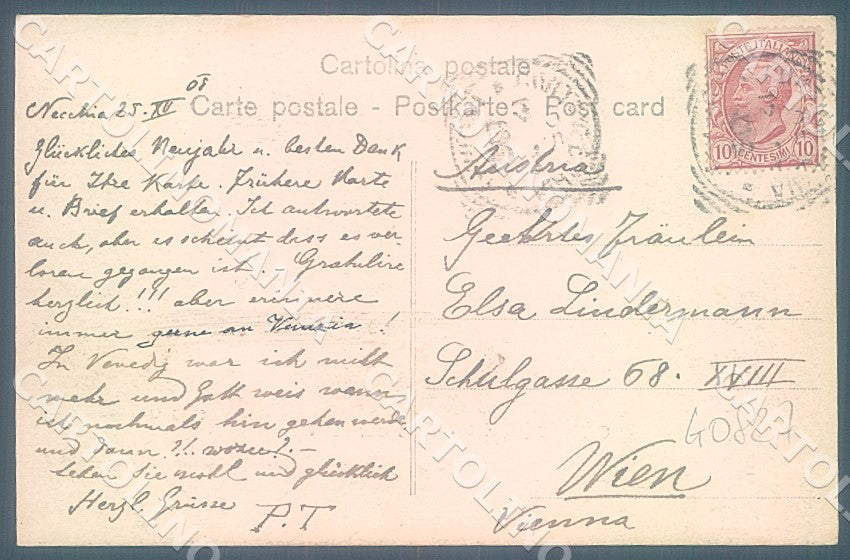 Cartolina postale
Carte postale - Postkarte - Post card
25. XII 08
Glückliches Neujahr u. besten Dank
für Ihre Karte. Frühere Karte
u. Brief erhalten. Ich antwortete
auch, aber es scheint dass es ver-
loren gegangen ist. - Gratulire
herzlich!!! aber erinnere
immer gerne an Venezia!
In Venedig war ich nicht
mehr und Gott weis wann
ich nochmals hin gehen werde
und dann?!. wozu?. -
Leben Sie wohl und glücklich
Herzl. Grüsse
P. T
POSTE ITALIANE
10 CENTESIMI 10
Austria
Geehrtes Fräulein
Elsa Lindermann
Schulgasse 68. XVIII
40827
Wien
Vienna
CARTOLINO
CARTOMANIA